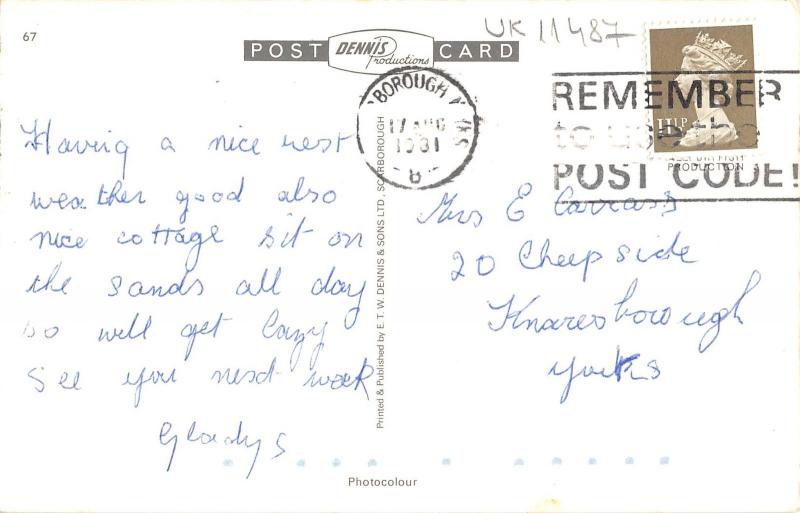 67
POST DENNIS Productions CARD
UK 11487
BOROUGH
17 AUG
1981
B
11½P
REMEMBER
to use the
POST CODE!
PRODUCTION
Having a nice rest
weather good also
nice cottage sit on
the sands all day
so will get lazy
See you next week
Gladys
Printed & Published by E. T. W. DENNIS & SONS LTD., SCARBOROUGH
Mrs E Carrass
20 Cheapside
Knaresborough
Yorks
Photocolour